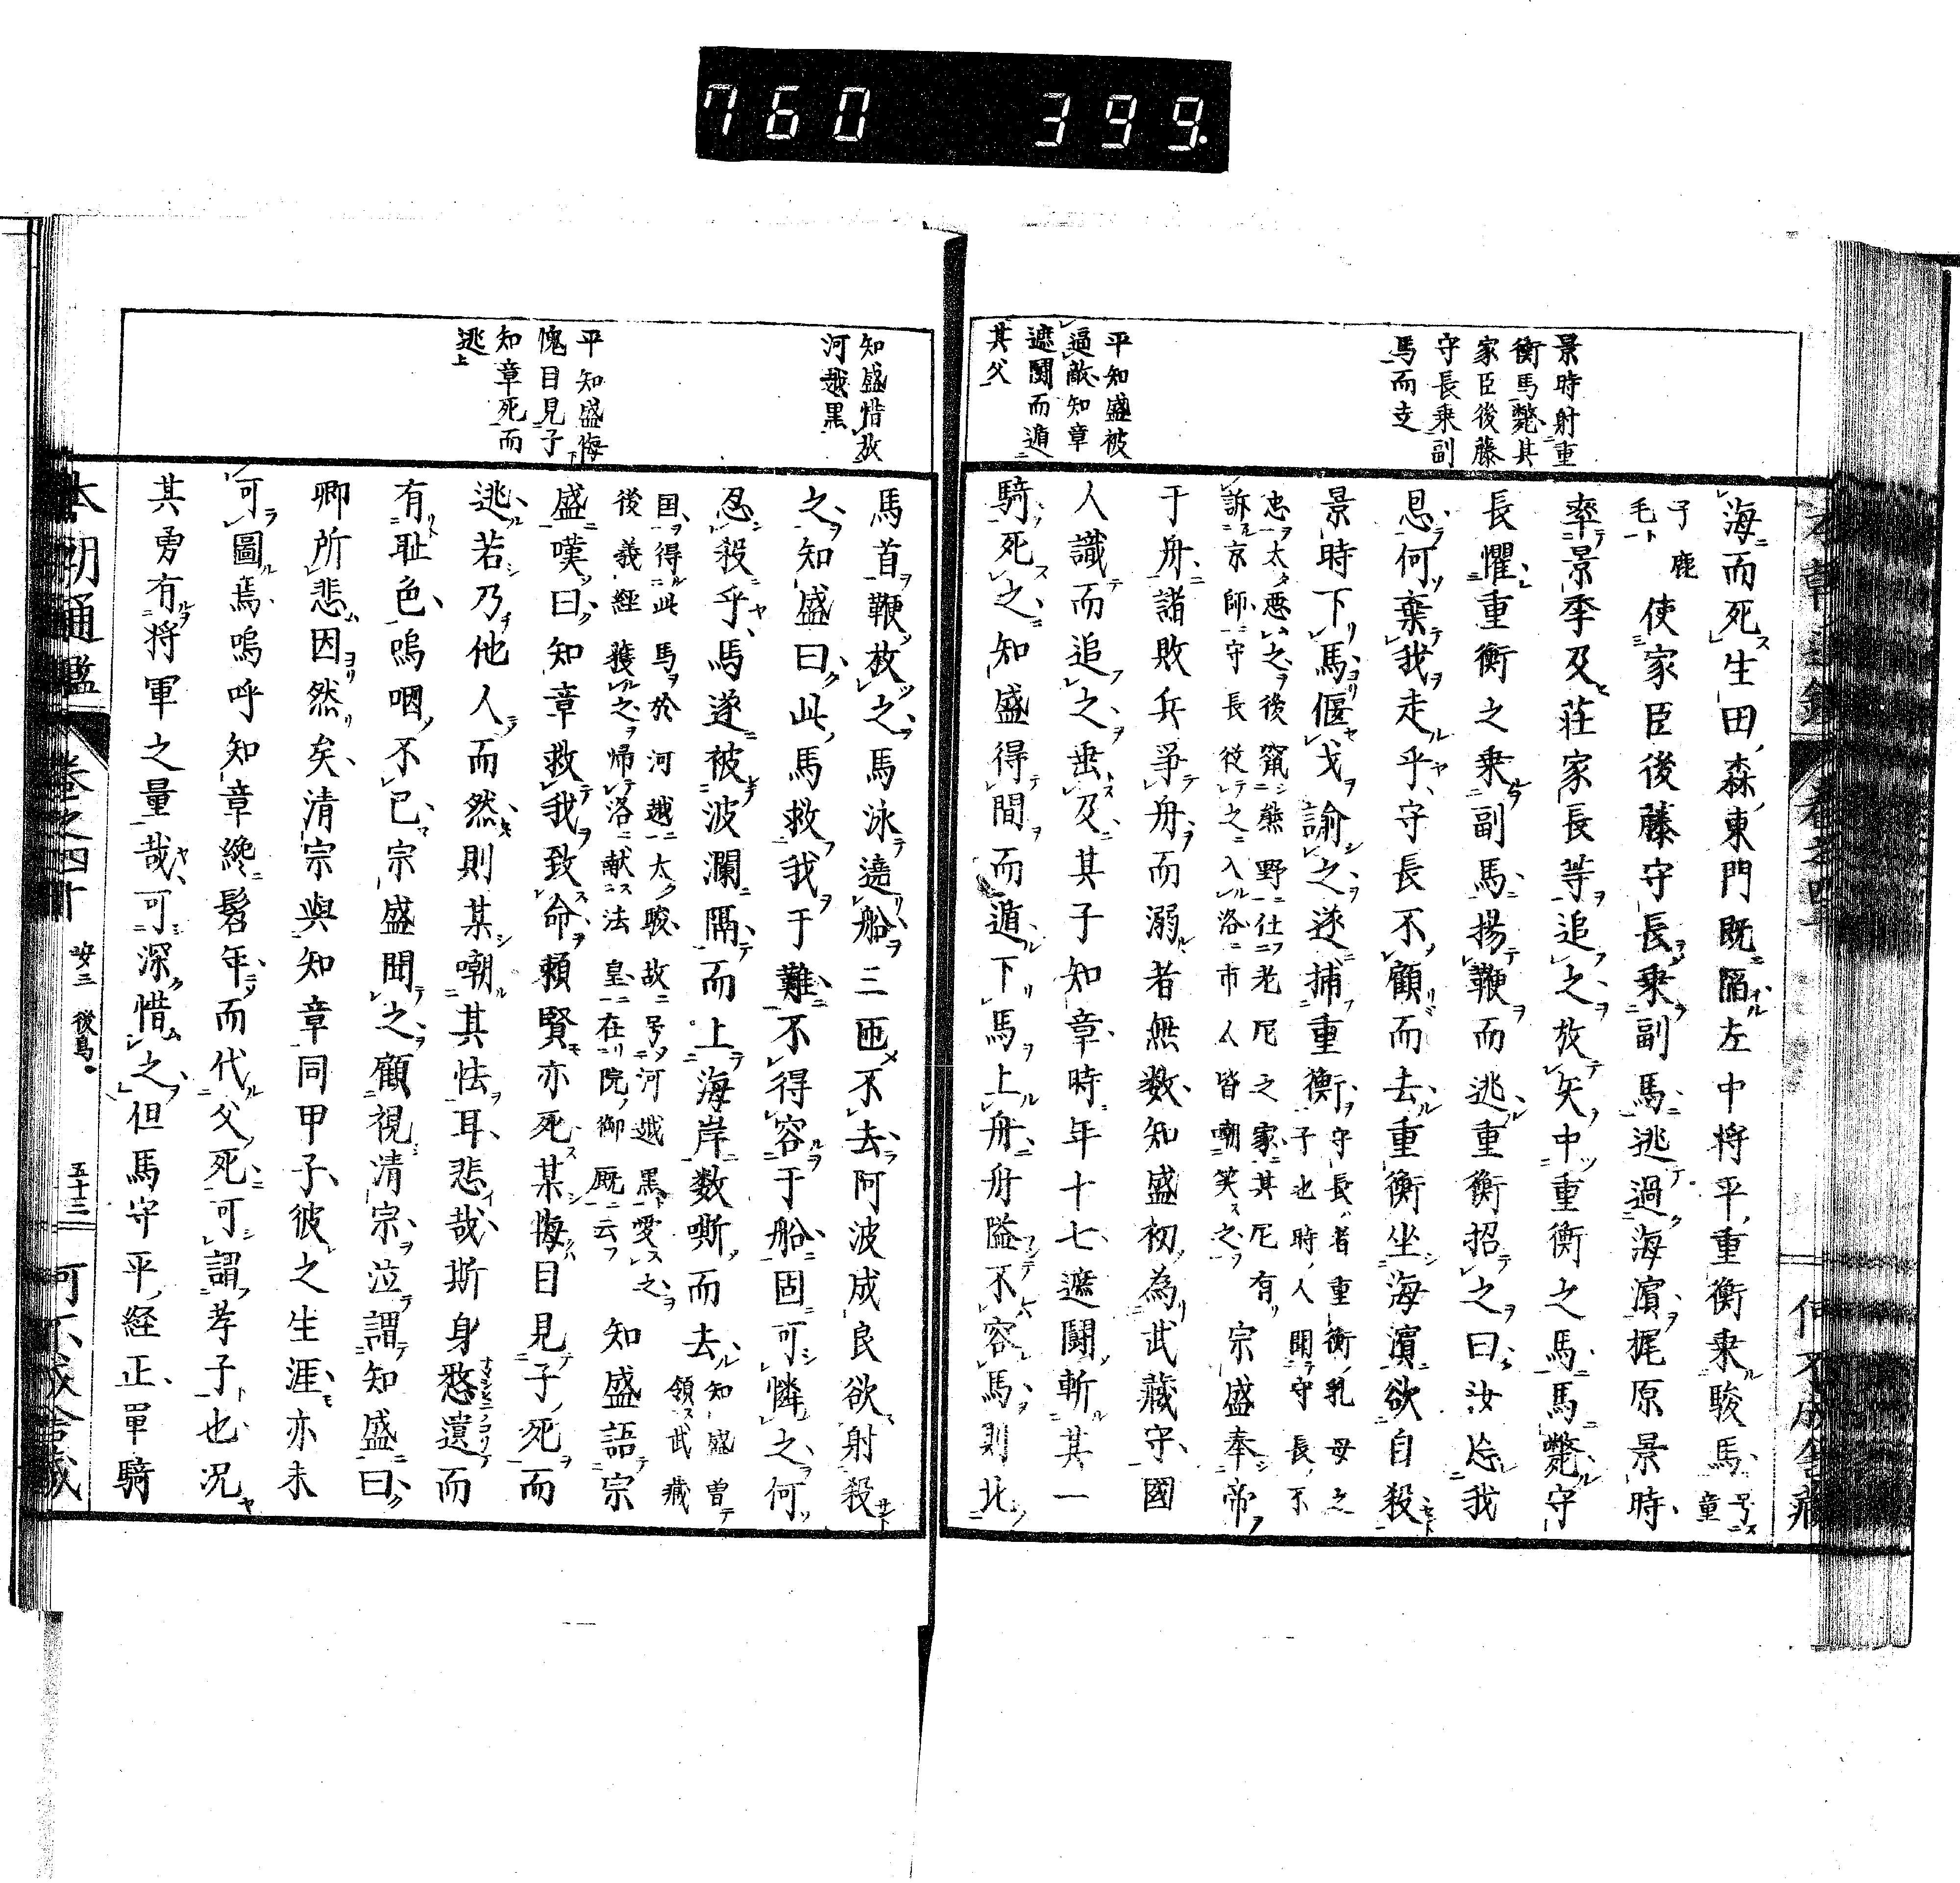 760 399.
景時射重
衡馬斃其
家臣後藤
守長乗副
馬而走
平知盛被
逼敵知章
遮闘而遁
其父
海而死生田森東門既隔左中将平重衡乗駿馬号童
子鹿毛使家臣後藤守長乗副馬逃過海濵梶原景時
率景季及荘家長等追之放矢中重衡之馬馬斃守
長懼重衡之乗副馬揚鞭而逃重衡招之曰汝忘我
恩何棄我走乎守長不顧而去重衡坐海濵欲自殺
景時下馬偃戈諭之遂捕重衡守長者重衡乳母之
子也時人聞守長不
忠太悪之後竄熊野仕老尼之家其尼有
訴京師守長従之入洛市人皆嘲笑之宗盛奉帝
于舟諸敗兵爭舟而溺者無数知盛初為武藏守國
人識而追之垂及其子知章時年十七遮闘斬其一
騎死之知盛得間而遁下馬上舟舟隘不容馬則北
知盛惜放
河越黒
平知盛悔
愧目見子
知章死而
逃上
馬首鞭放之馬泳遶船三匝不去阿波成良欲射殺
之知盛曰此馬救我于難不得容于船固可憐之何
忍殺乎馬遂被波瀾隔而上海岸数嘶而去知盛曽
領武藏
国得此馬於河越太駿故号河越黒愛之
後義経獲之帰洛献法皇在院御厩云知盛語宗
盛嘆曰知章救我致命頼賢亦死某悔目見子死而
逃若乃他人而然則某嘲其怯耳悲哉斯身憖遺而
有耻色嗚咽不已宗盛聞之顧視清宗泣謂知盛曰
卿所悲因然矣清宗與知章同甲子彼之生涯亦未
可圖焉嗚呼知章纔髫年而代父死可謂孝子也况
其勇有将軍之量哉可深惜之但馬守平経正單騎
本朝通鑑 卷之四十 安三 後鳥。 五十三